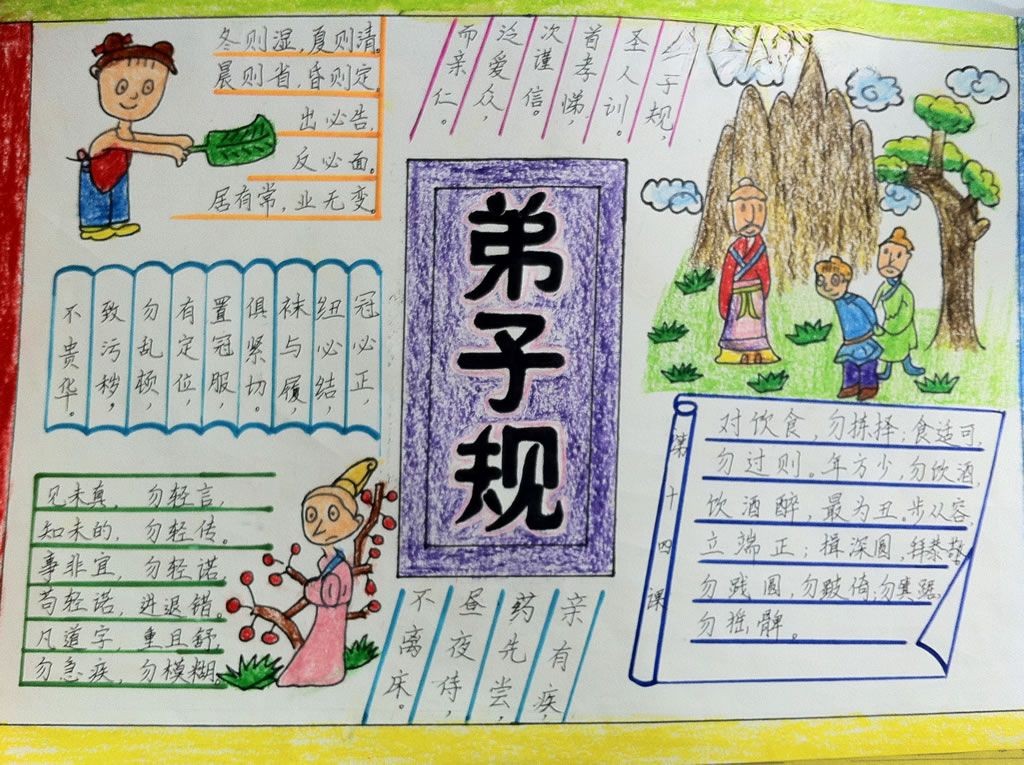 冬则湿,夏则清。
晨则省,昏则定。
出必告,
反必面。
居有常,业无变。
子规,
圣人训。
首孝悌,
次谨信。
泛爱众,
而亲仁。
弟子规
冠必正,
纽必结,
袜与履,
俱紧切。
置冠服,
有定位,
勿乱顿,
致污秽,
不贵华。
见未真, 勿轻言,
知未的, 勿轻传。
事非宜, 勿轻诺,
苟轻诺, 进退错。
凡道字, 重且舒,
勿急疾, 勿模糊。
亲有疾,
药先尝,
昼夜侍,
不离床。
第十四课
对饮食,勿拣择;食适可,
勿过则。年方少,勿饮酒,
饮酒醉,最为丑。步从容,
立端正;揖深圆,拜恭敬。
勿践圆,勿跛倚;勿箕踞,
勿摇髀。